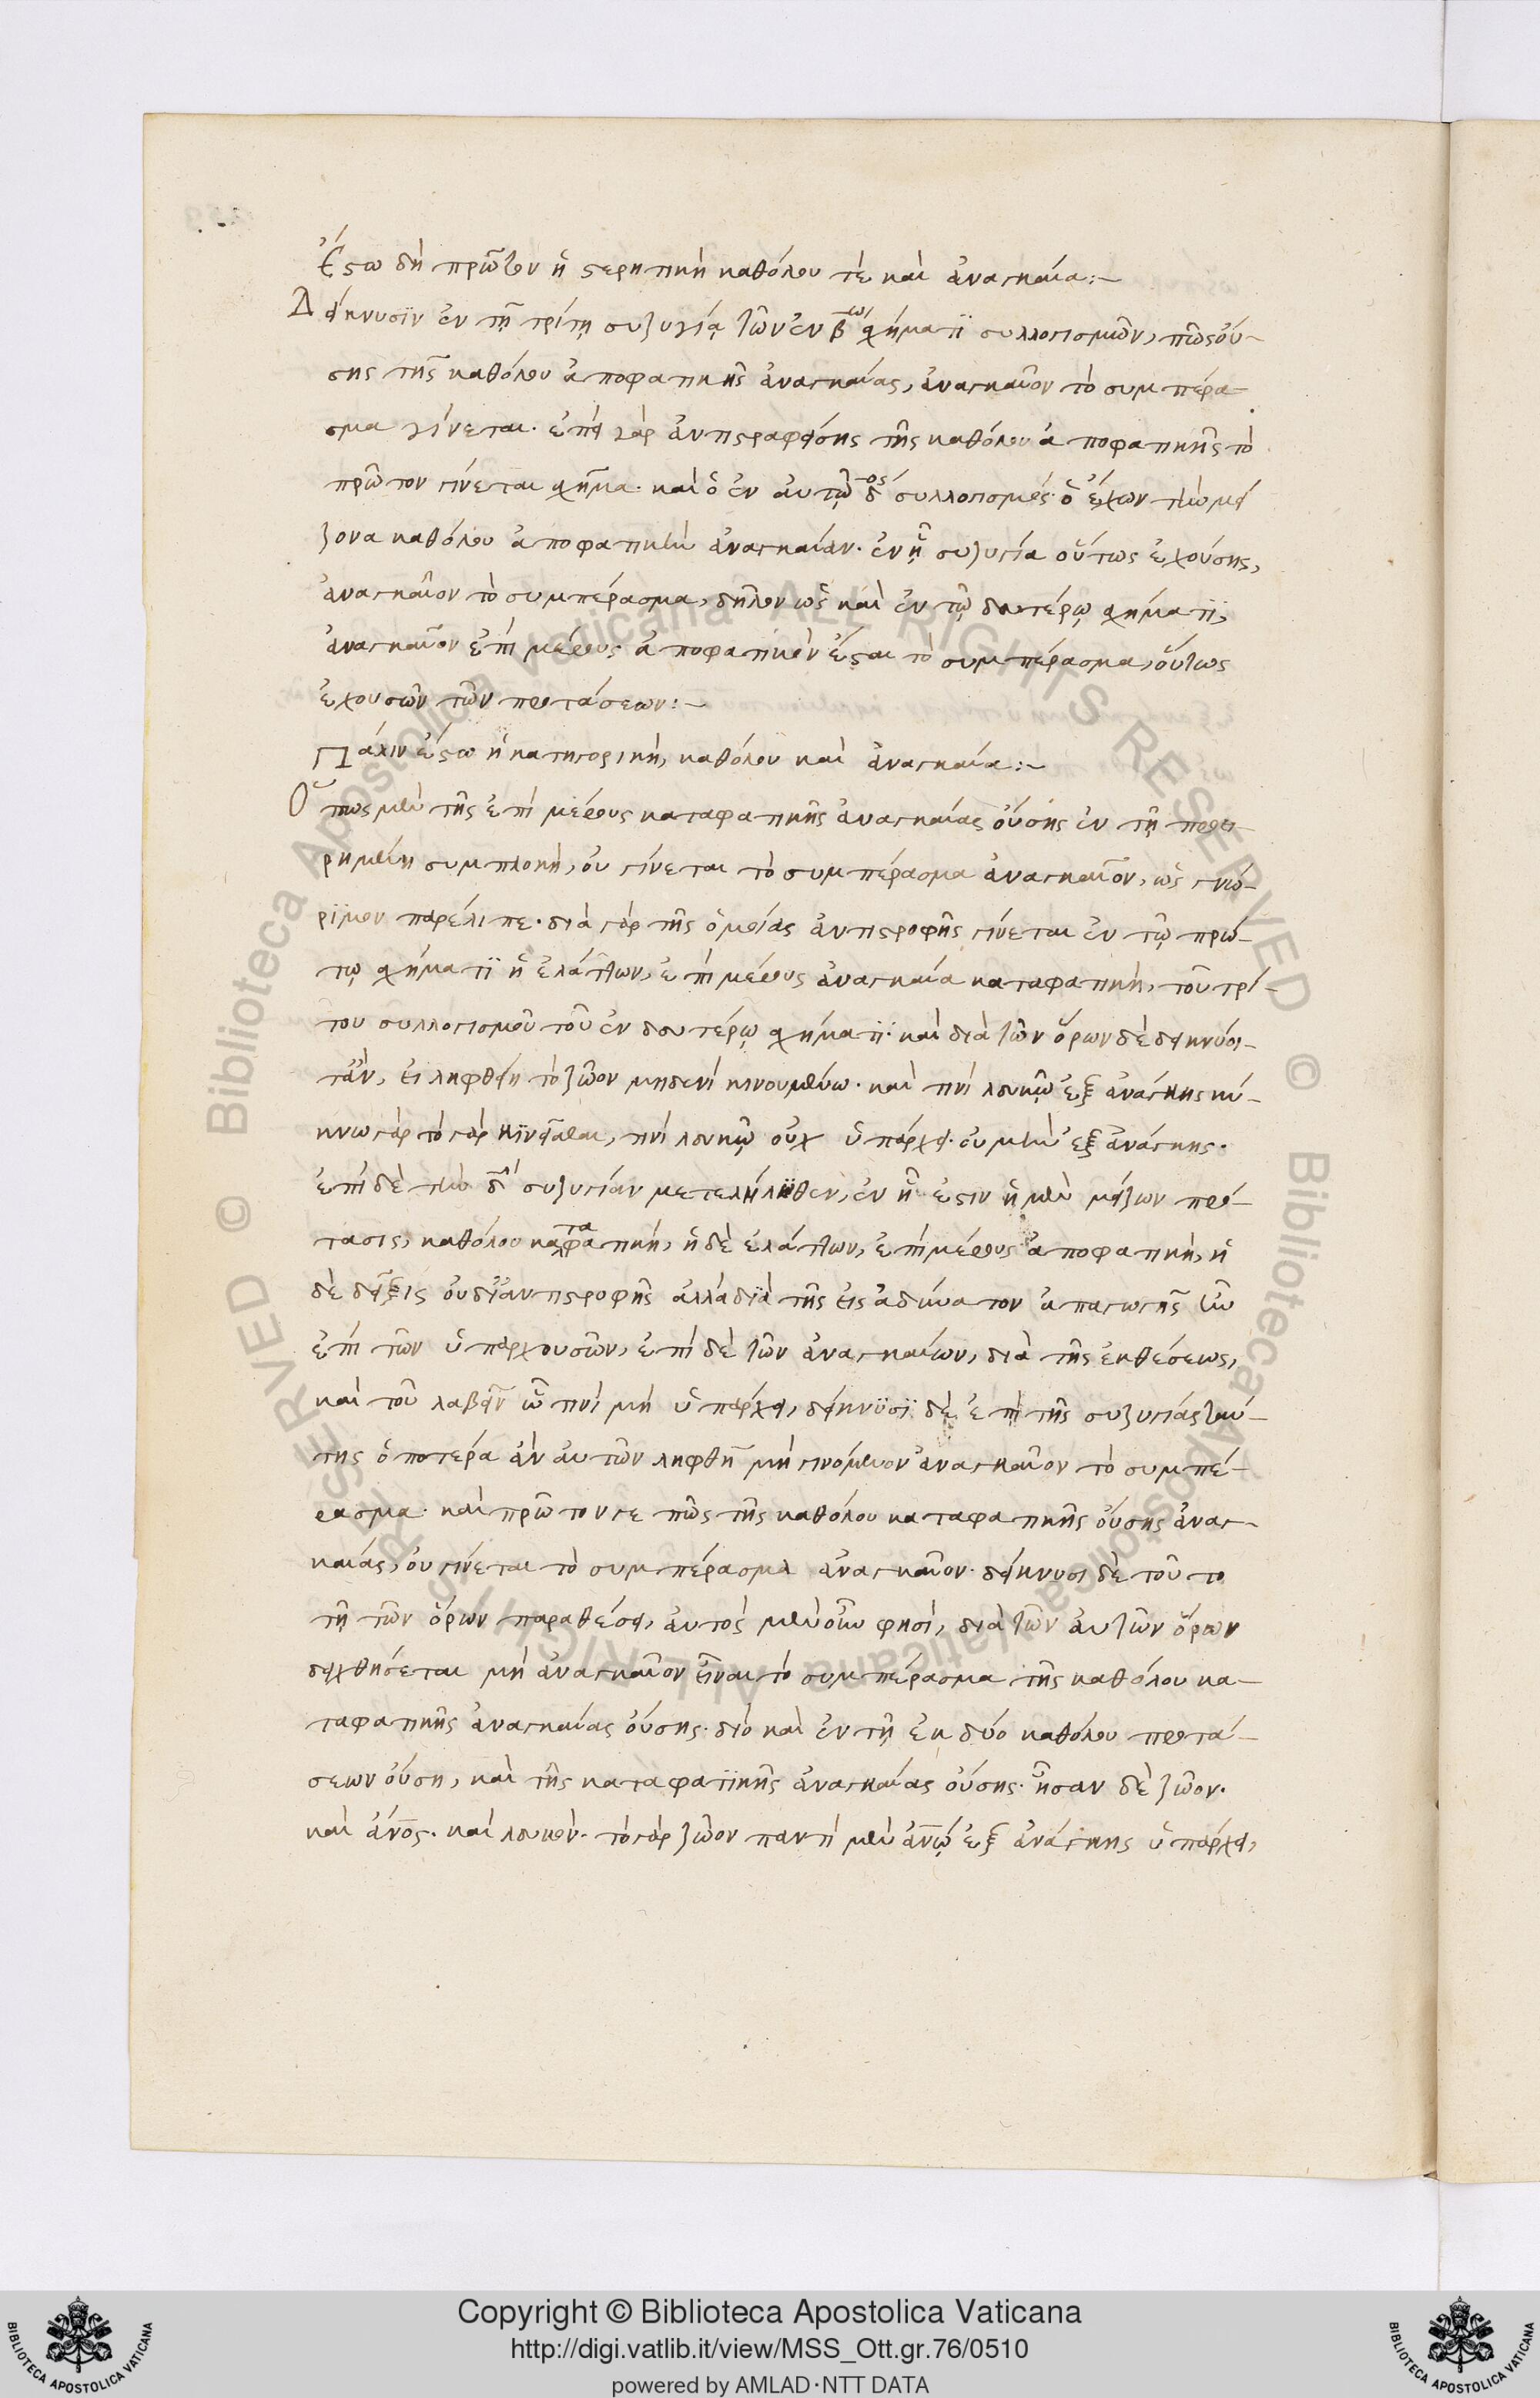 Ἔστω δὴ πρῶτον ἡ στερητικὴ καθόλου τὲ καὶ ἀναγκαία:~
Δείκνυσϊν ἐν τῇ τρίτῃ συζυγίᾳ τῶν ἐν β^ω σχήματϊ συλλογισμῶν, πῶς οὔ-
σης τῆς καθόλου ἀποφατικῆς ἀναγκαίας, ἀναγκαῖον τὸ συμπέρα-
σμα γίνεται. ἐπεὶ γὰρ ἀντιστραφείσης τῆς καθόλου ἀποφατικῆς τὸ
πρῶτον γίνεται σχῆμα. καὶ ὁ ἐν αὐτῷ δ^ος συλλογισμός. ὁ ἔχων τὴν μεί
ζονα καθόλου ἀποφατικὴν ἀναγκαίαν. ἐν ᾗ συζυγία οὕτως ἐχούσης,
ἀναγκαῖον τὸ συμπέρασμα, δῆλον ὡς καὶ ἐν τῷ δευτέρῳ σχήματϊ,
ἀναγκαῖον ἐπὶ μέρους ἀποφατικὸν ἔσται τὸ συμπέρασμα, οὕτως
ἐχουσῶν τῶν προτάσεων:~
Πάλιν ἔστω ἡ κατηγορικὴ, καθόλου καὶ ἀναγκαία:~
Ὅπως μὲν τῆς ἐπὶ μέρους καταφατικῆς ἀναγκαίας οὔσης ἐν τῇ προει-
ρημένη συμπλοκῆ, οὐ γίνεται τὸ συμπέρασμα ἀναγκαῖον, ὡς γνώ-
ρϊμον παρέλιπε. διὰ γὰρ τῆς ὁμοίας ἀντιστροφῆς γίνεται ἐν τῷ πρώ-
τῳ σχήματϊ ἡ ἐλάττων, ἐπὶ μέρους ἀναγκαία καταφατικὴ, τοῦ τρί-
του συλλογισμοῦ τοῦ ἐν δευτέρῳ σχήματϊ. καὶ διὰ τῶν ὅρων δὲ δεικνύοι-
τἂν, εἰ ληφθείη τὸ ζῶον μηδενὶ κινουμένω. καὶ τινὶ λευκῷ ἐξ ἀνάγκης κύ-
κνω γὰρ τὸ γὰρ κϊνεῖσθαι, τινὶ λευκῷ οὐχ ὑπάρχει. οὐ μὴν ἐξ ἀνάγκης.
ἐπὶ δὲ τὴν δ^η συζυγίαν μετελήλϋθεν, ἐν ᾗ ἐστιν ἡ μὲν μείζων πρό-
τασις, καθόλου καταφατικὴ, ἡ δὲ ἐλάττων, ἐπὶ μέρους ἀποφατικὴ, ἡ
δὲ δεῖξις οὐ δι' ἀντιστροφῆς ἀλλὰ διὰ τῆς εἰς ἀδύνατον ἀπαγωγῆς ἦν
ἐπὶ τῶν ὑπαρχουσῶν, ἐπὶ δὲ τῶν ἀναγκαίων, διὰ τῆς ἐκθέσεως,
καὶ τοῦ λαβεῖν ᾧ τινὶ μὴ ὑπάρχει, δείκνϋσϊ δὲ ἐπὶ τῆς συζυγίας ταύ-
της ὁποτέρα ἂν αὐτῶν ληφθῆ μὴ γινόμενον ἀναγκαῖον τὸ συμπέ-
ρασμα. καὶ πρῶτον γε πῶς τῆς καθόλου καταφατικῆς οὔσης ἀναγ-
καίας, οὐ γίνεται τὸ συμπέρασμα ἀναγκαῖον. δείκνυσι δὲ τοῦτο
τῇ τῶν ὅρων παραθέσει, αὐτὸς μὲν οὖν φησὶ, διὰ τῶν αὐτῶν ὅρων
δειχθήσεται μὴ ἀναγκαῖον εἶναι τὸ συμπέρασμα τῆς καθόλου κα-
ταφατικῆς ἀναγκαίας οὔσης. διὸ καὶ ἐν τῇ ἐκ δύο καθόλου προτά-
σεων οὔση, καὶ τῆς καταφατϊκῆς ἀναγκαίας οὔσης. ἦσαν δὲ ζῶον.
καὶ ἄν̅ος. καὶ λευκόν. τὸ γὰρ ζῶον παντὶ μὲν ἀν̅ῳ ἐξ ἀνάγκης ὑπάρχει,
Copyright © Biblioteca Apostolica Vaticana
http://digi.vatlib.it/view/MSS_Ott.gr.76/0510
powered by AMLAD·NTT DATA